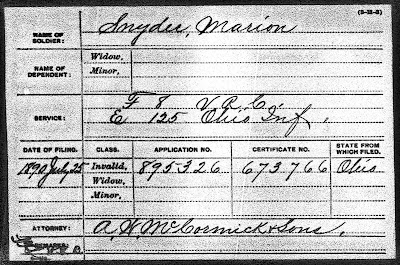 (3-111-8)
NAME OF SOLDIER: Snyder, Marion
NAME OF DEPENDENT: Widow,
Minor,
SERVICE: F 8 V. R. C.
E 125 Ohio Inf,
DATE OF FILING. CLASS. APPLICATION NO. CERTIFICATE NO. STATE FROM WHICH FILED.
1890 July 25 Invalid, 895326 673766 Ohio
Widow,
Minor,
ATTORNEY: A. W. McCormick & Sons.
REMARKS: